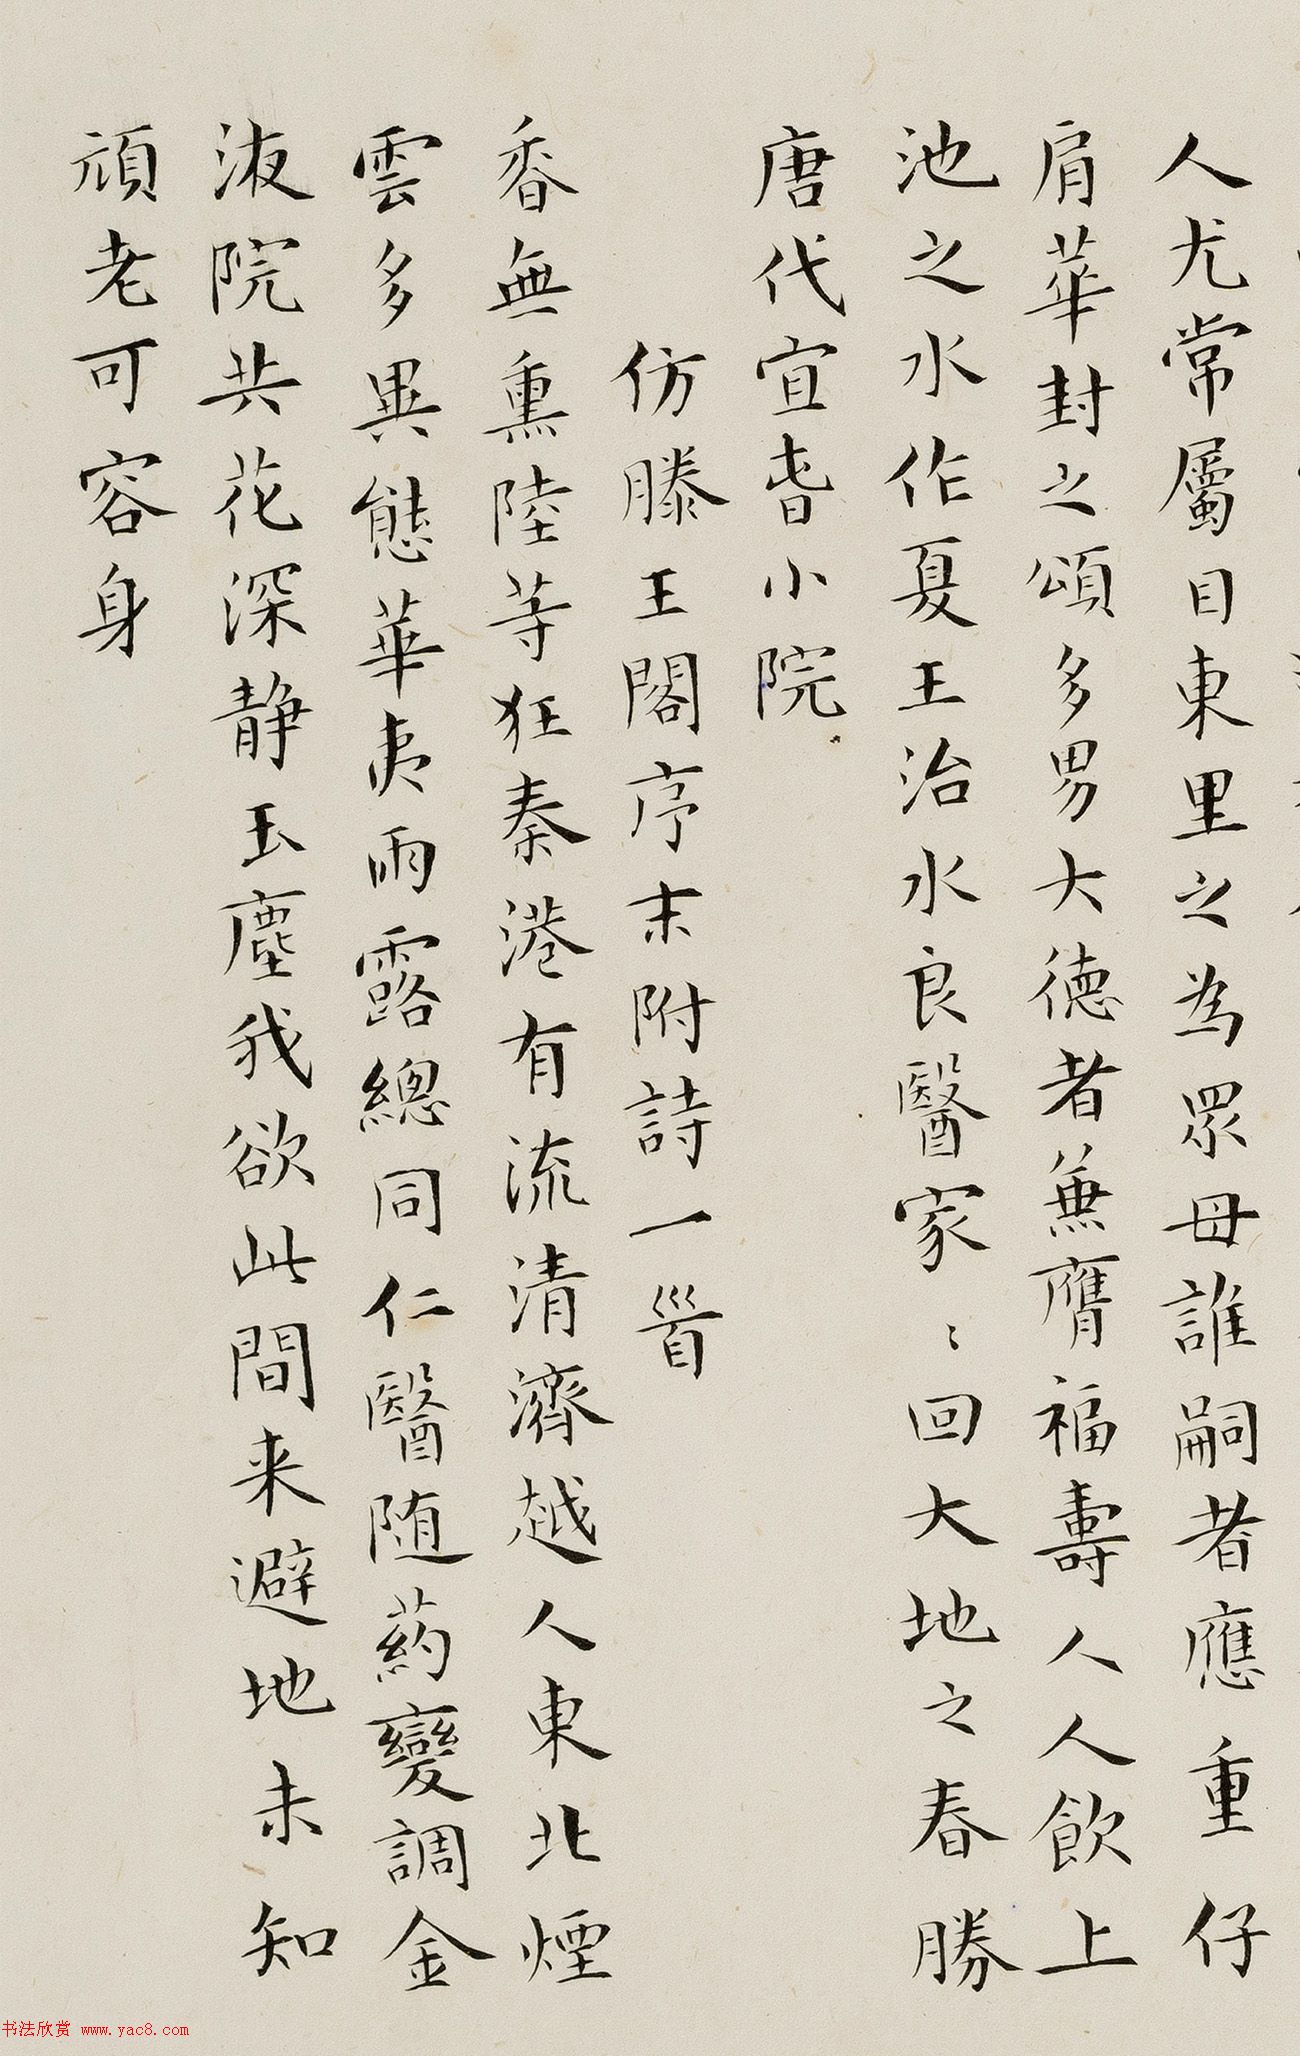 人尤常屬目東里之為眾母誰嗣者應重仔
肩華封之頌多男大德者兼膺福壽人人飲上
池之水作夏王治水良醫家〻回大地之春勝
唐代宜春小院
仿滕王閣序末附詩一首
香無熏陸等狂秦港有流清濟越人東北煙
雲多異態華夷雨露總同仁醫随葯變調金
液院共花深靜玉塵我欲此間来避地未知
頑老可容身
书法欣赏 www.yac8.com